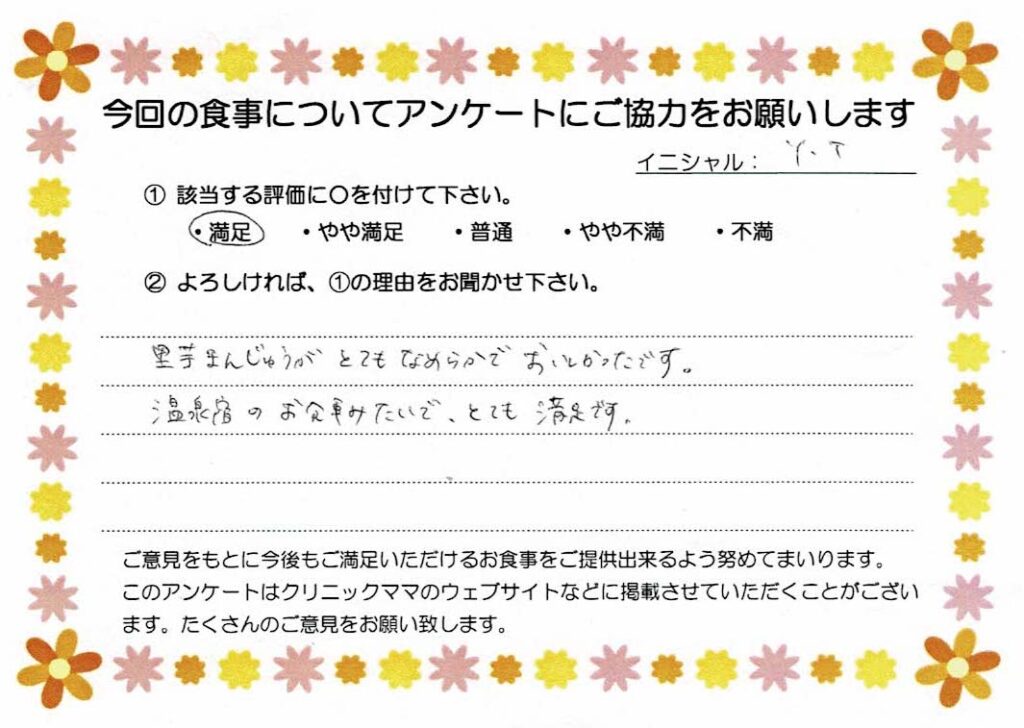 今回の食事についてアンケートにご協力をお願いします
イニシャル： Y.T
① 該当する評価に〇を付けて下さい。
・満足 ・やや満足 ・普通 ・やや不満 ・不満
② よろしければ、①の理由をお聞かせ下さい。
里芋まんじゅうが とても なめらかで おいしかったです。
温泉宿の お食事みたいで、とても 満足です。
ご意見をもとに今後もご満足いただけるお食事をご提供出来るよう努めてまいります。
このアンケートはクリニックママのウェブサイトなどに掲載させていただくことがござい
ます。たくさんのご意見をお願い致します。